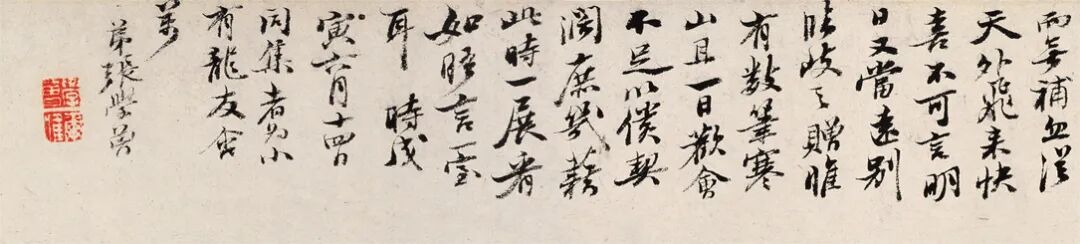 而無補從
天外飛来快
喜不可言明
日又當遠別
臨岐之贈唯
有数筆寒
山且一日歡會
不足以償契
濶庶幾藉
此時一展看
如晤言一室
耳 時戊
寅六月十四日
同集者為小
有龍友會
萬
弟張學曾